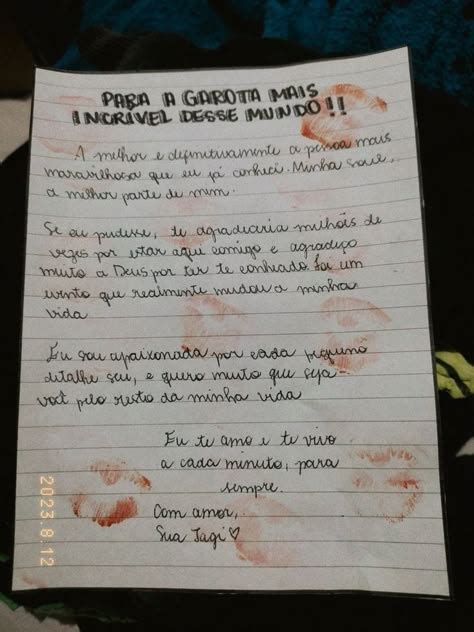 PARA A GAROTA MAIS
INCRIVEL DESSE MUNDO!!
A melhor e definitivamente a pessoa mais
maravilhosa que eu já conheci. Minha
a melhor parte de mim.
Se eu pudesse, te agradeceria milhões de
vezes por estar aqui comigo e agradeço
muito a Deus por ter te conhecido foi um
evento que realmente mudou a minha
vida
Eu sou apaixonada por cada pequeno
detalhe seu, e quero muito que seja
você pelo resto da minha vida
Eu te amo e te vivo
a cada minuto, para
sempre.
Com amor,
Sua Tagi♡
2023.8.12